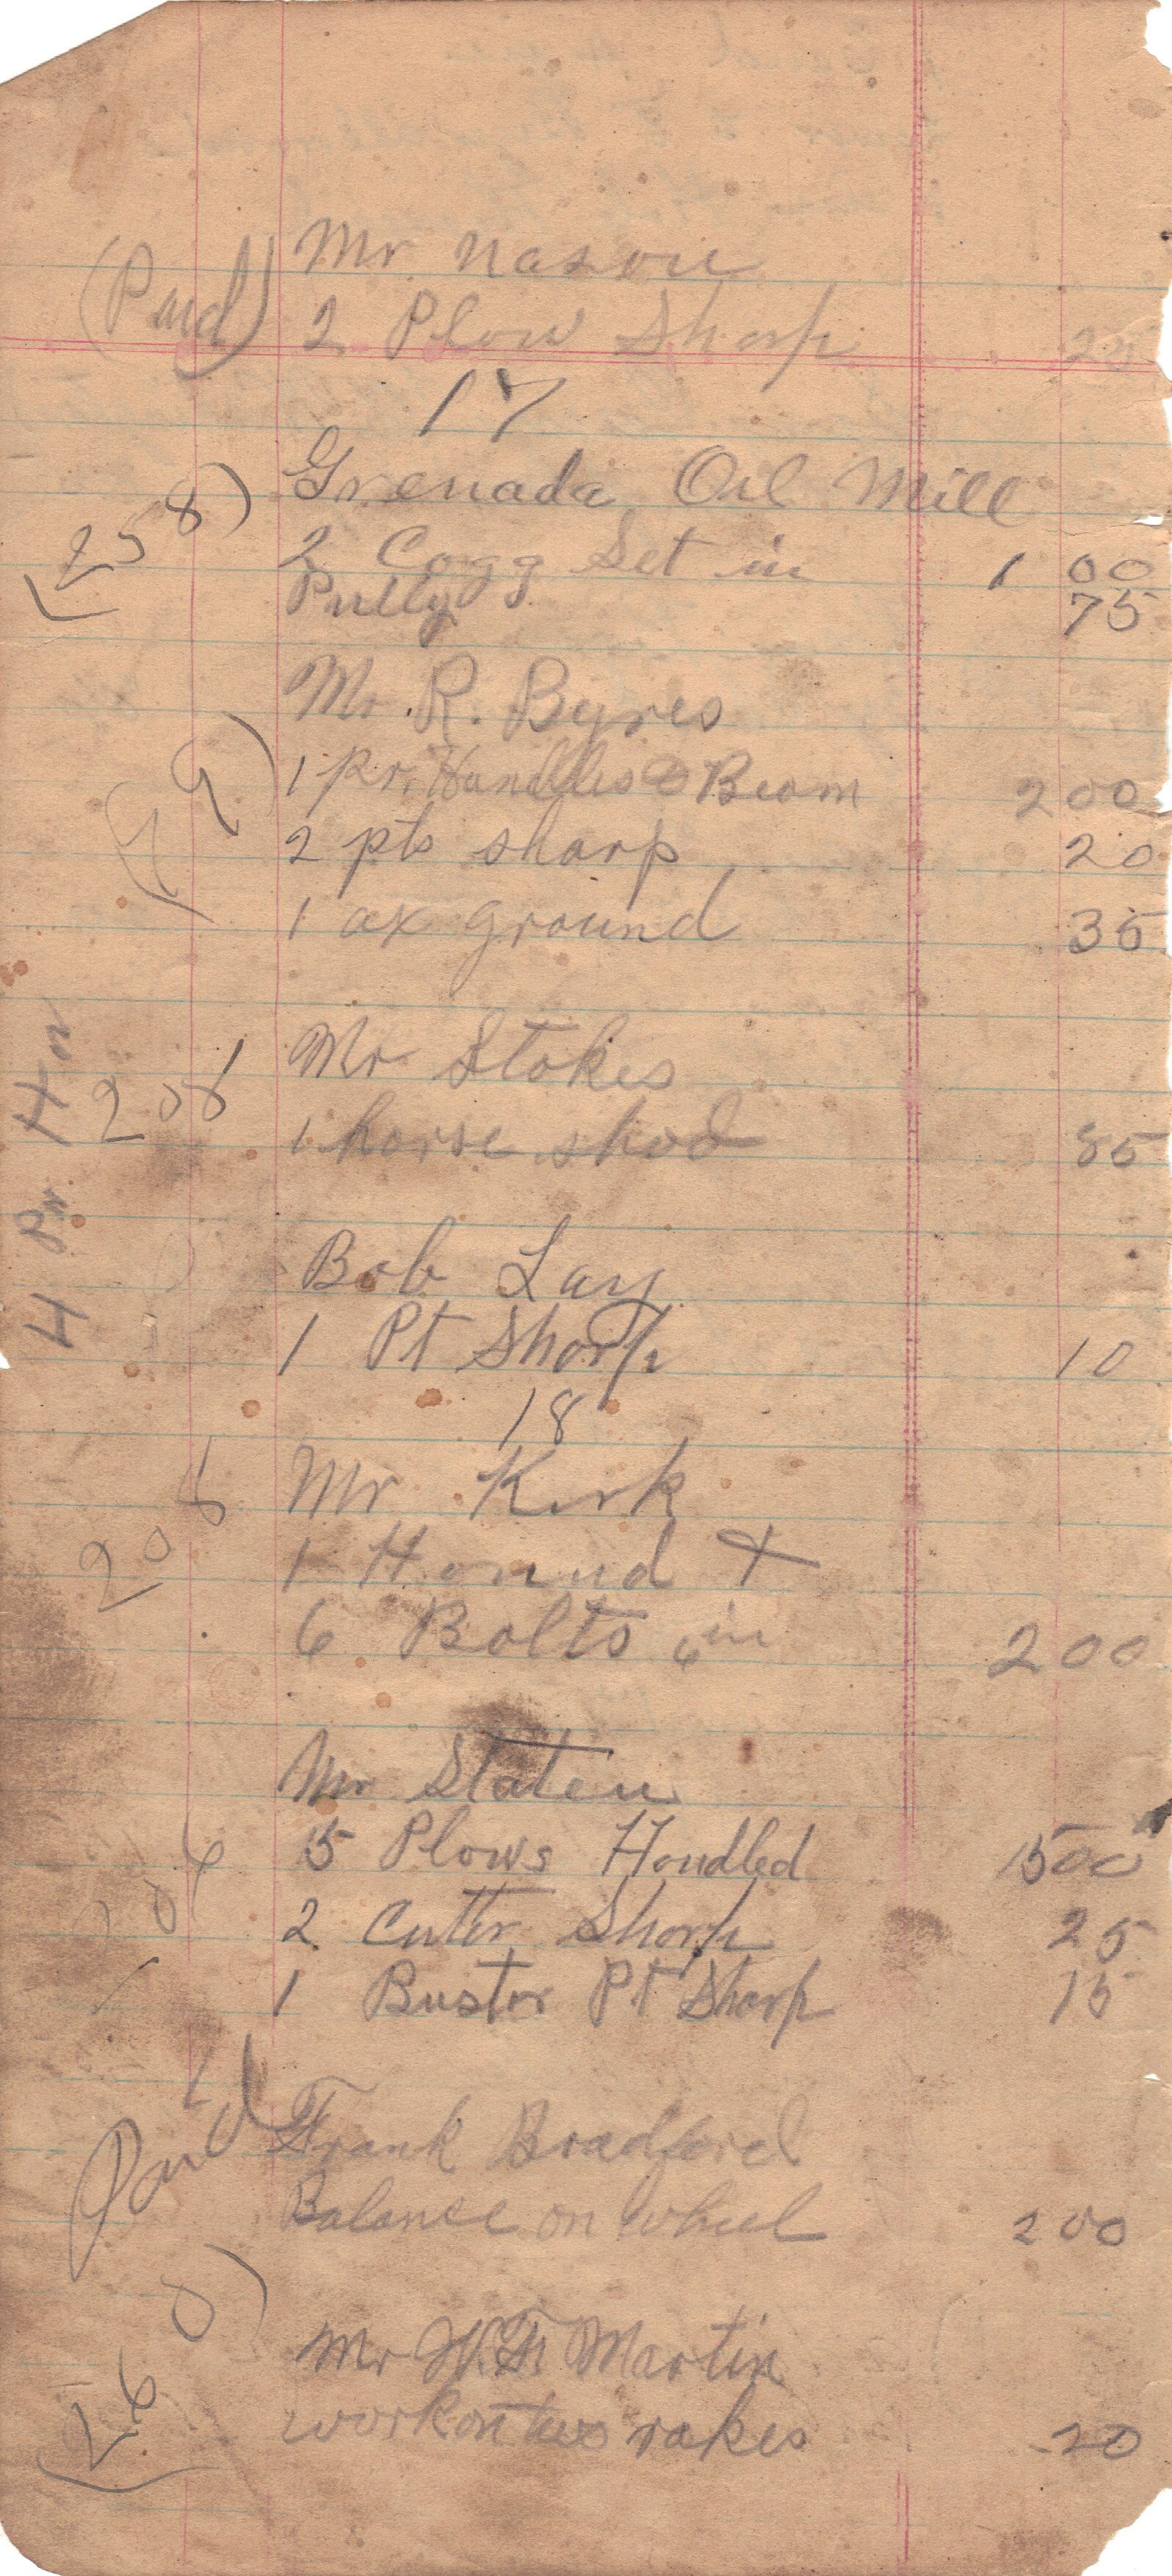 Mr Nason
(Paid) 2 Plow Sharp 25
17
Grenada Oil Mill
(258) 2 Cogg Set in 1 00
Pully 75
Mr. R. Byres
1 pr. Handles & Beam 2 00
2 pts sharp 20
1 ax ground 35
Mr Stokes
1 horse shod 85
Bob Lay
1 Pt Sharp 10
18
Mr Kirk
1 Hound &
6 Bolts in 2 00
Mr Staten
15 Plows Handled 15 00
2 Cutter Sharp 25
1 Buster Pt Sharp 15
Paid Frank Bradford
Balance on wheel 2 00
Mr W.F. Martin
(260) work on two rakes 20